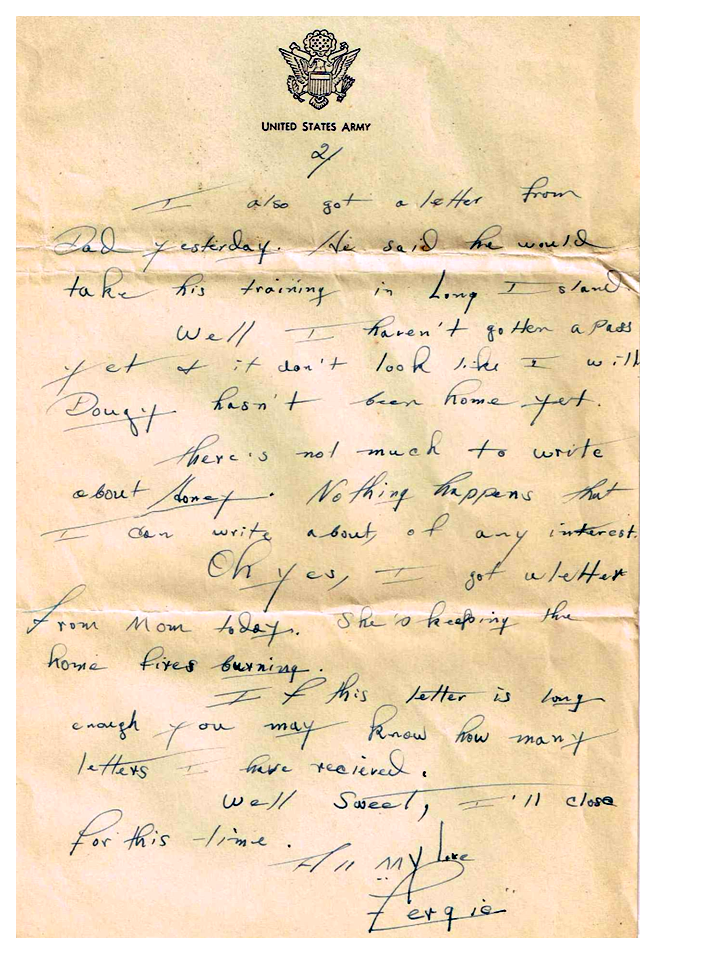 UNITED STATES ARMY
2/
I also got a letter from
Dad yesterday. He said he would
take his training in Long Island.
Well I haven't gotten a pass
yet & it don't look like I will
Dougy hasn't been home yet.
there's not much to write
about Honey. Nothing happens that
I can write about, of any interest.
Oh yes, I got a letter
from Mom today. She's keeping the
home fires burning.
If this letter is long
enough you may know how many
letters I have recieved.
Well Sweet, I'll close
for this time.
All my love
"Fergie"